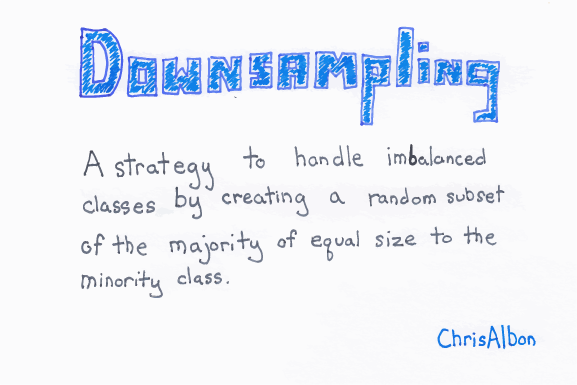 Downsampling
A strategy to handle imbalanced
classes by creating a random subset
of the majority of equal size to the
minority class.
ChrisAlbon